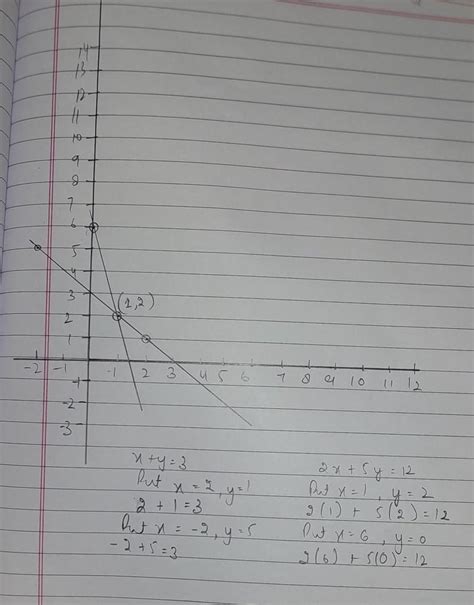 14
13
12
11
10
9
8
7
6
5
4
3
(1,2)
2
1
-2 -1 -1 2 3 4 5 6 7 8 9 10 11 12
-1
-2
-3
x+y=3
Put x = 2, y=1
2 + 1 = 3
Put x = -2, y=5
-2+5=3
2x + 5y = 12
Put x=1, y = 2
2(1) + 5(2) = 12
Put x=6, y=0
2(6) + 5(0)=12